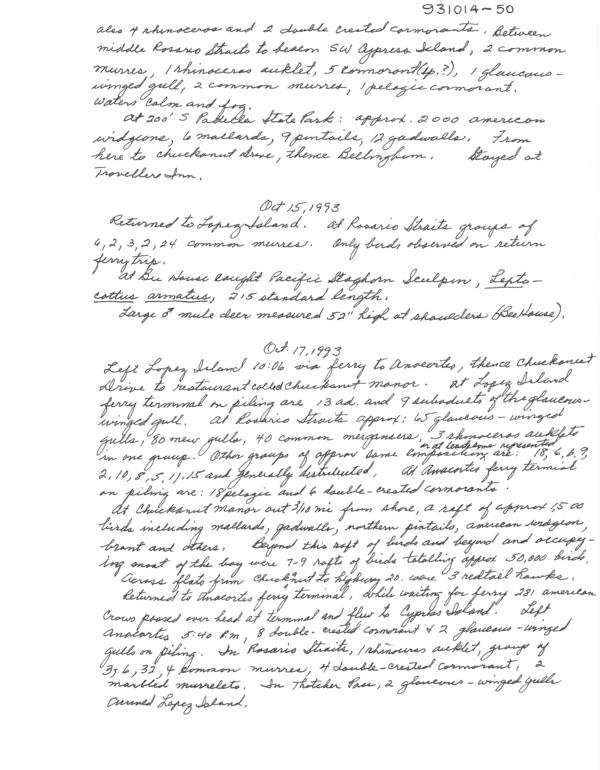 931014-50
also 4 rhinoceros and 2 double crested cormorants. Between
middle Rosario Straits to beacon SW Cypress Island, 2 common
murres, 1 rhinoceros auklet, 5 cormorant (sp.?), 1 glaucous-
winged gull, 2 common murres, 1 pelagic cormorant.
Waters calm and fog.
At 200' S Padilla State Park: approx. 2000 american
widgeons, 6 mallards, 9 pintails, 12 gadwalls. From
here to Chuckanut Drive, thence Bellingham. Stayed at
Travellers Inn.
Oct 15, 1993
Returned to Lopez Island. At Rosario Straits groups of
6, 2, 3, 2, 24 common murres. Only birds observed on return
ferry trip.
At Bee House caught Pacific Staghorn Sculpin, Lepto-
cottus armatus, 215 standard length.
Large ♂ mule deer measured 52" high at shoulders (Bee House).
Oct. 17, 1993
Left Lopez Island 10:06 via ferry to Anacortes, thence Chuckanut
Drive to restaurant called Chuckanut Manor. At Lopez Island
ferry terminal on piling are 13 ad. and 9 subadults of the glaucous-
winged gull. At Rosario Straits approx: 65 glaucous-winged
gulls, 80 mew gulls, 40 common mergansers, 3 rhinoceros auklets
in one group. Other groups of approx same composition or at least some represented are: 18, 6, 6, 9,
2, 10, 8, 5, 11, 15 and generally distributed. At Anacortes ferry terminal
on piling are: 18 pelagic and 6 double-crested cormorants.
At Chuckanut Manor out 3/10 mi from shore, a raft of approx 1,500
birds including mallards, gadwalls, northern pintails, american widgeon,
brant and others. Beyond this raft of birds and beyond and occupy-
ing most of the bay were 7-9 rafts of birds totalling approx 50,000 birds.
Across flats from Chuckanut to highway 20 were 3 redtail hawks.
Returned to Anacortes ferry terminal, while waiting for ferry 281 american
crows passed over head at terminal and flew to Cypress Island. Left
Anacortes 5:40 P.M, 8 double-crested cormorant & 2 glaucous-winged
gulls on piling. In Rosario Straits, 1 rhinoceros auklet, group of
3, 6, 32, 4 common murres, 4 double-crested cormorant, 2
marbled murrelets. In Thatcher Pass, 2 glaucous-winged gulls
Arrived Lopez Island.